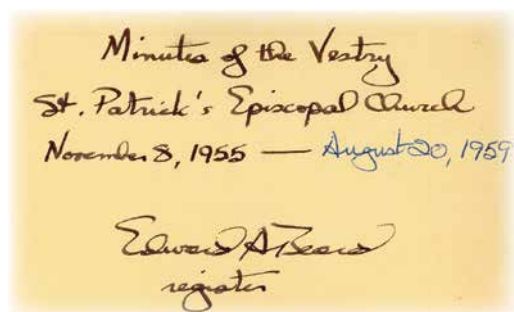 Minutes of the Vestry
St. Patrick's Episcopal Church
November 8, 1955 — August 20, 1959
Edward A Beard
register